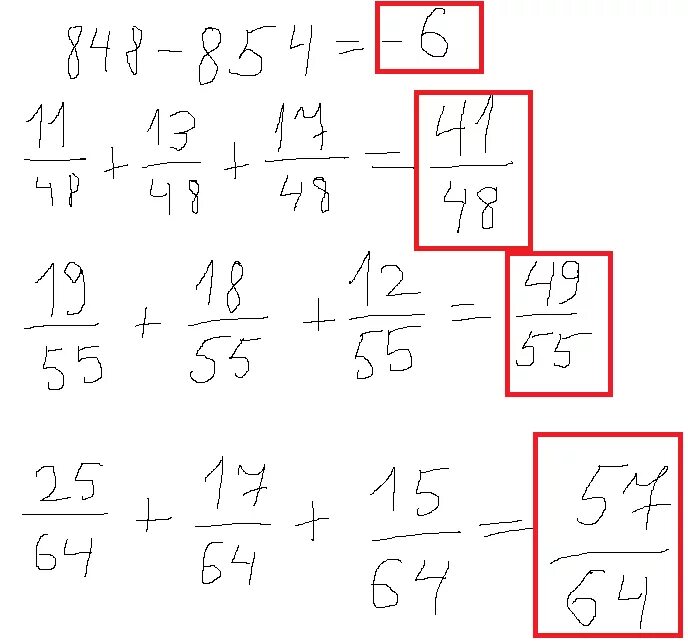 848 - 854 = -6
11/48 + 13/48 + 17/48 = 41/48
19/55 + 18/55 + 12/55 = 49/55
25/64 + 17/64 + 15/64 = 57/64